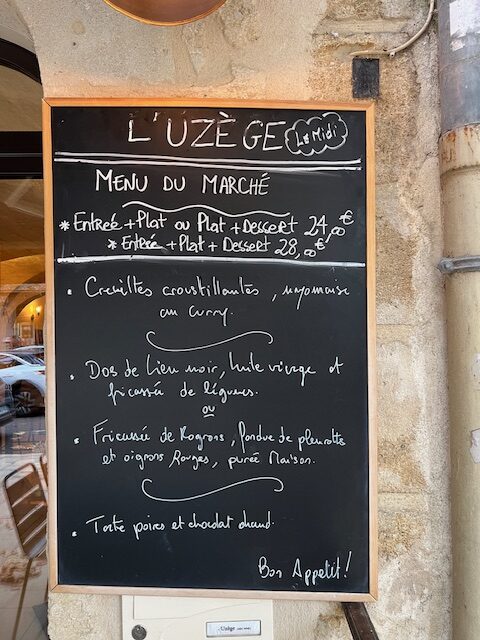 L'UZÈGE Le Midi
MENU DU MARCHÉ
* Entrée + Plat ou Plat + Dessert 24,00€
* Entrée + Plat + Dessert 28,00€
• Crevettes croustillantes, mayonaise
au curry.
• Dos de lieu noir, huile vierge et
fricassée de légumes.
ou
• Fricassée de Rognons, fondue de pleurottes
et oignons Rouges, purée Maison.
• Tarte poires et chocolat chaud.
Bon Appetit!
L'Uzège